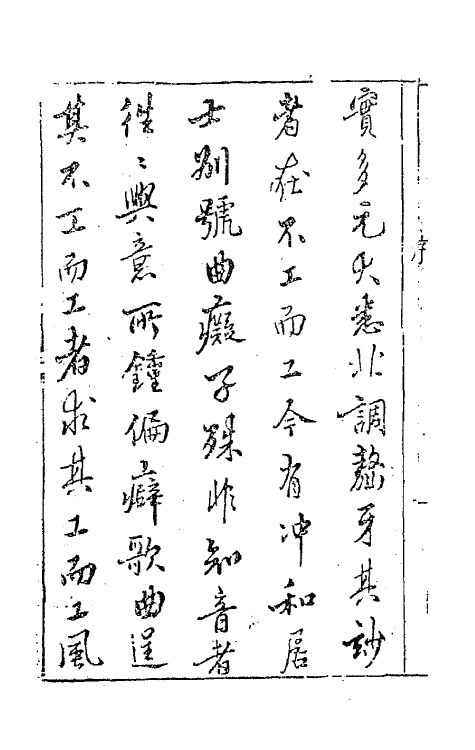 序
實多元悉北調聱牙其妙
者在不工而工今有冲和居
士別號曲癡子殊非知音者
往〻興意所鍾偏癖歌曲逞
其不工而工者求其工而工風